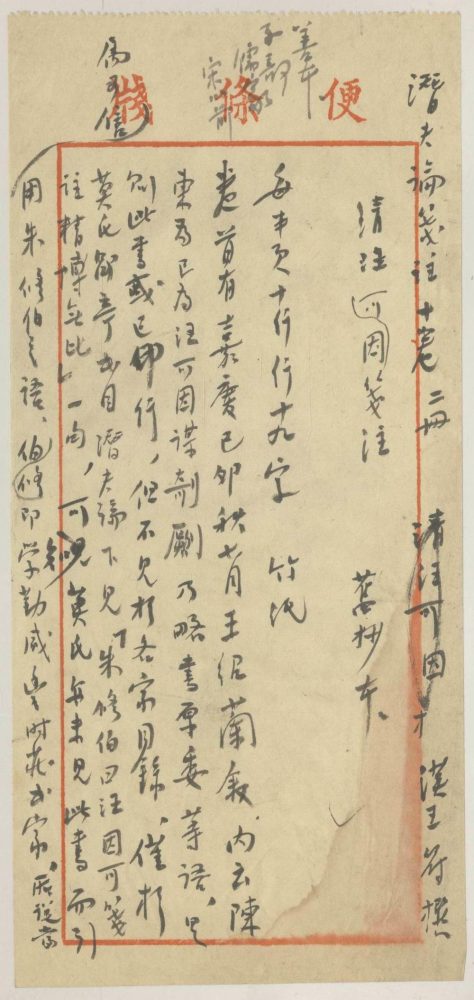 便條箋
善本
子部
儒家
宋以前
潛夫論箋注 十卷 二冊 清汪可因 漢王符撰
清汪可因箋注 舊抄本、
每半頁十行行十九字 竹紙
卷首有嘉慶己卯秋七月王紹蘭敘,內云陳
東為已為汪可因謀剞劂乃略書原委等語,是
則此書或已印行,但不見於各家目錄,僅於
莫氏郘亭書目潛夫論下見「朱修伯曰汪因可箋
注精博無比」一句,可見莫氏亦未見此書而引
用朱修伯之語、伯修即學勤咸豐時藏書家,所說當
為可信